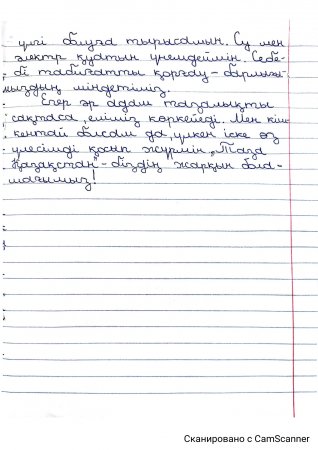 үлгі болуға тырысамын. Су мен
электр қуатын үнемдеймін. Себе-
бі табиғатты қорғау - барлығы-
мыздың міндетіміз.
Егер әр адам тазалықты
сақтаса, еліміз көркейеді. Мен кіш-
кентай болсам да, үлкен іске өз
үлесімді қосып жүрмін. „Таза
Қазақстан" - біздің жарқын бола-
шағымыз!
Сканировано с CamScanner